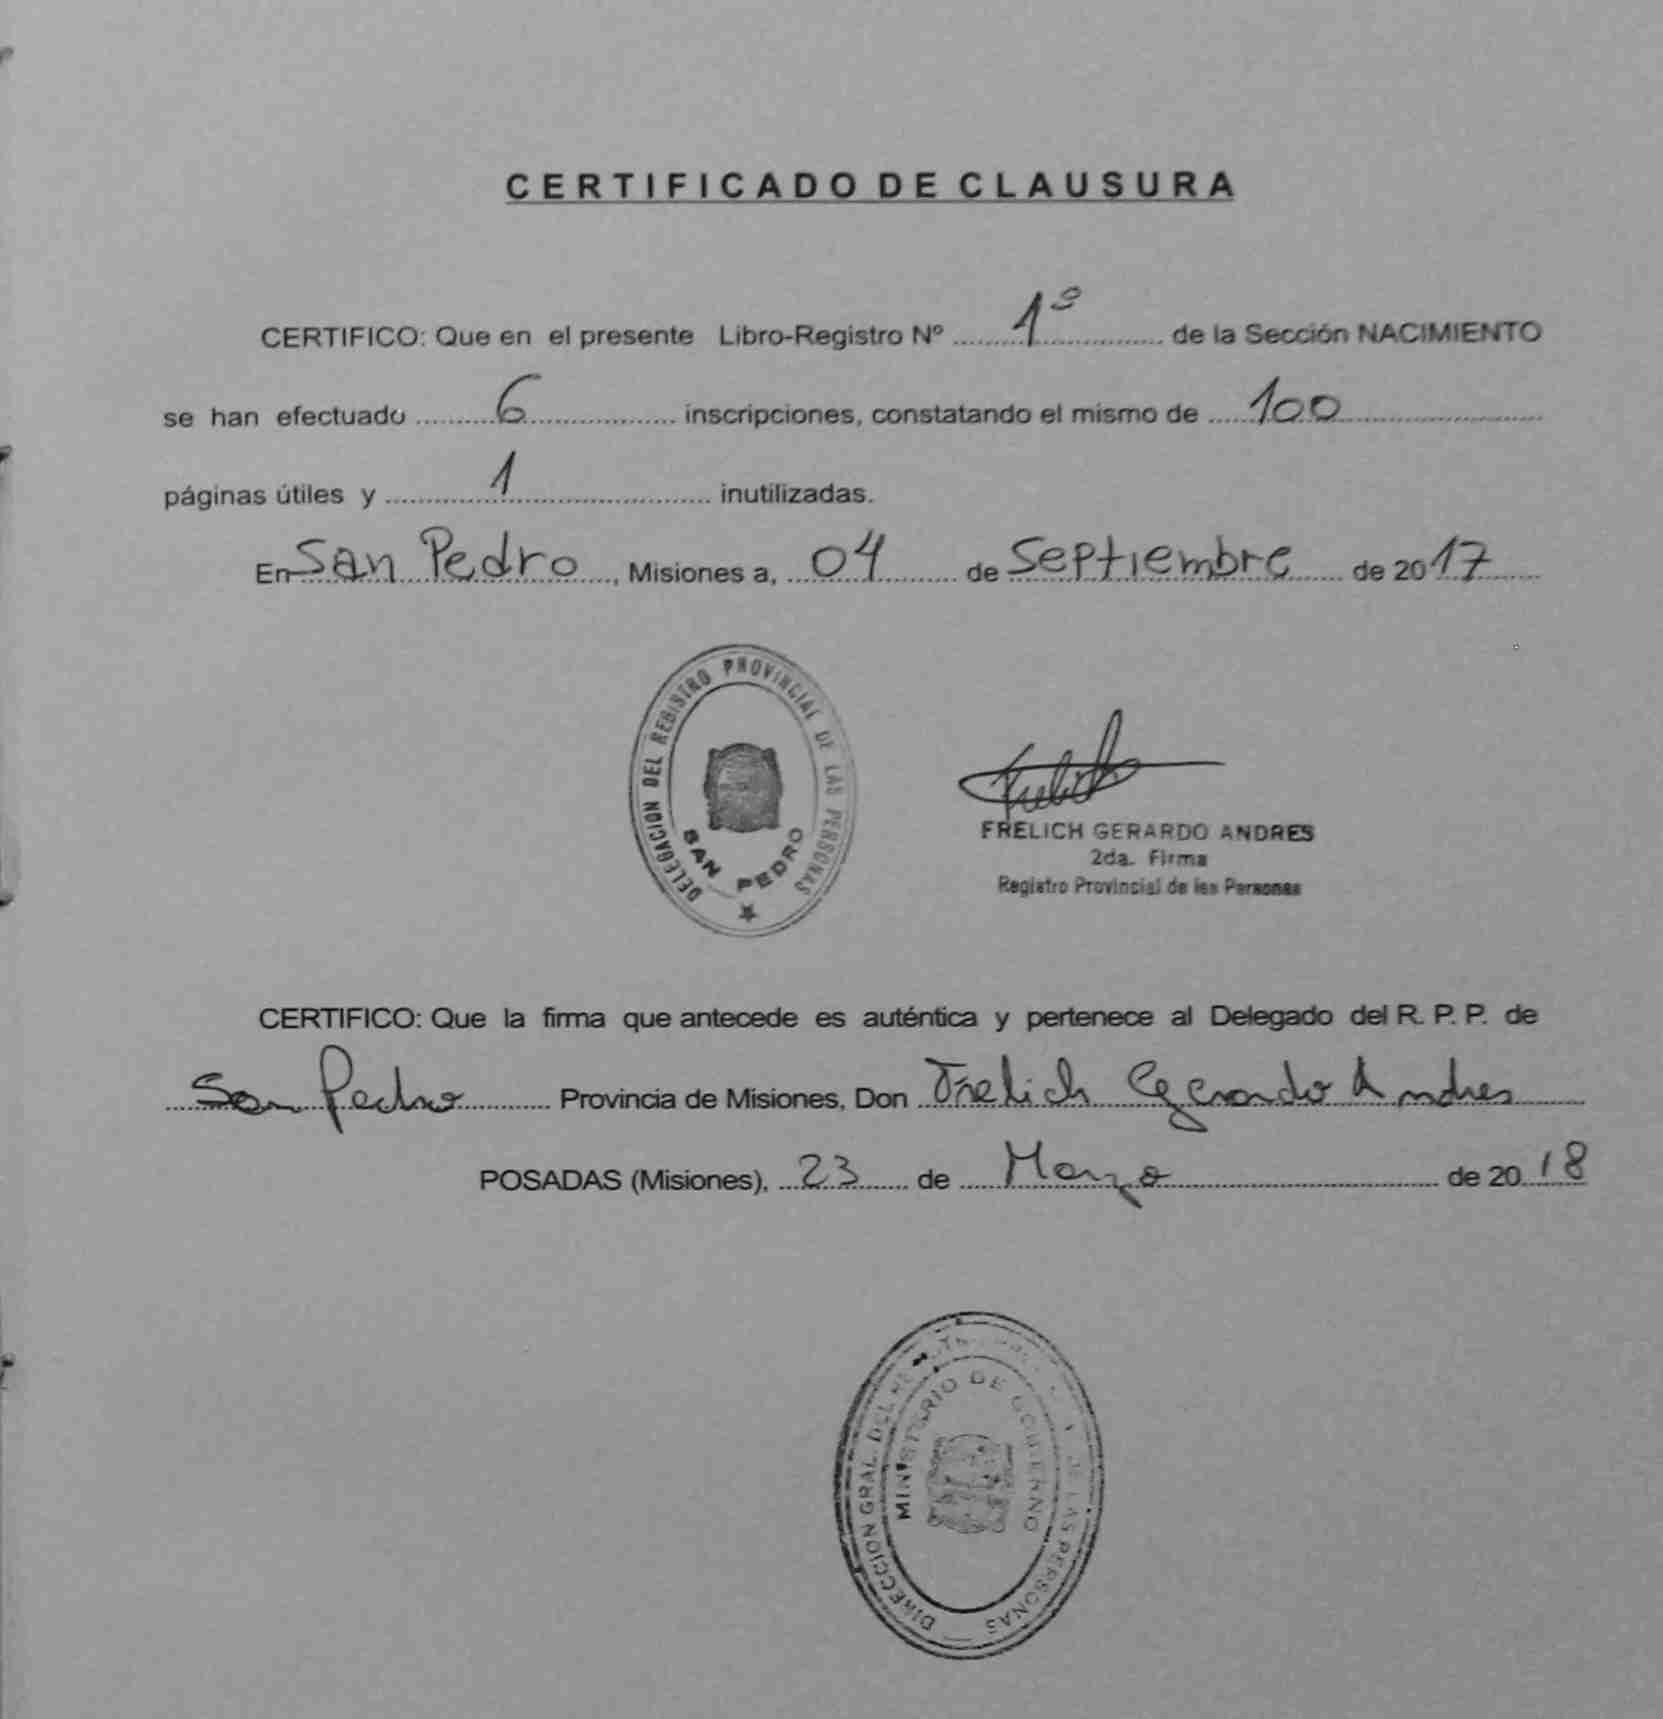 CERTIFICADO DE CLAUSURA
CERTIFICO: Que en el presente Libro-Registro Nº 1º de la Sección NACIMIENTO
se han efectuado 6 inscripciones, constatando el mismo de 100
páginas útiles y 1 inutilizadas.
En San Pedro, Misiones a, 04 de Septiembre de 2017
DELEGACION DEL REGISTRO PROVINCIAL DE LAS PERSONAS
SAN PEDRO
Frelich
FRELICH GERARDO ANDRES
2da. Firma
Registro Provincial de las Personas
CERTIFICO: Que la firma que antecede es auténtica y pertenece al Delegado del R. P. P. de
San Pedro Provincia de Misiones, Don Frelich Gerardo Andres
POSADAS (Misiones), 23 de Marzo de 2018
DIRECCION GRAL. DEL DE LAS PERSONAS
MINISTERIO DE GOBIERNO